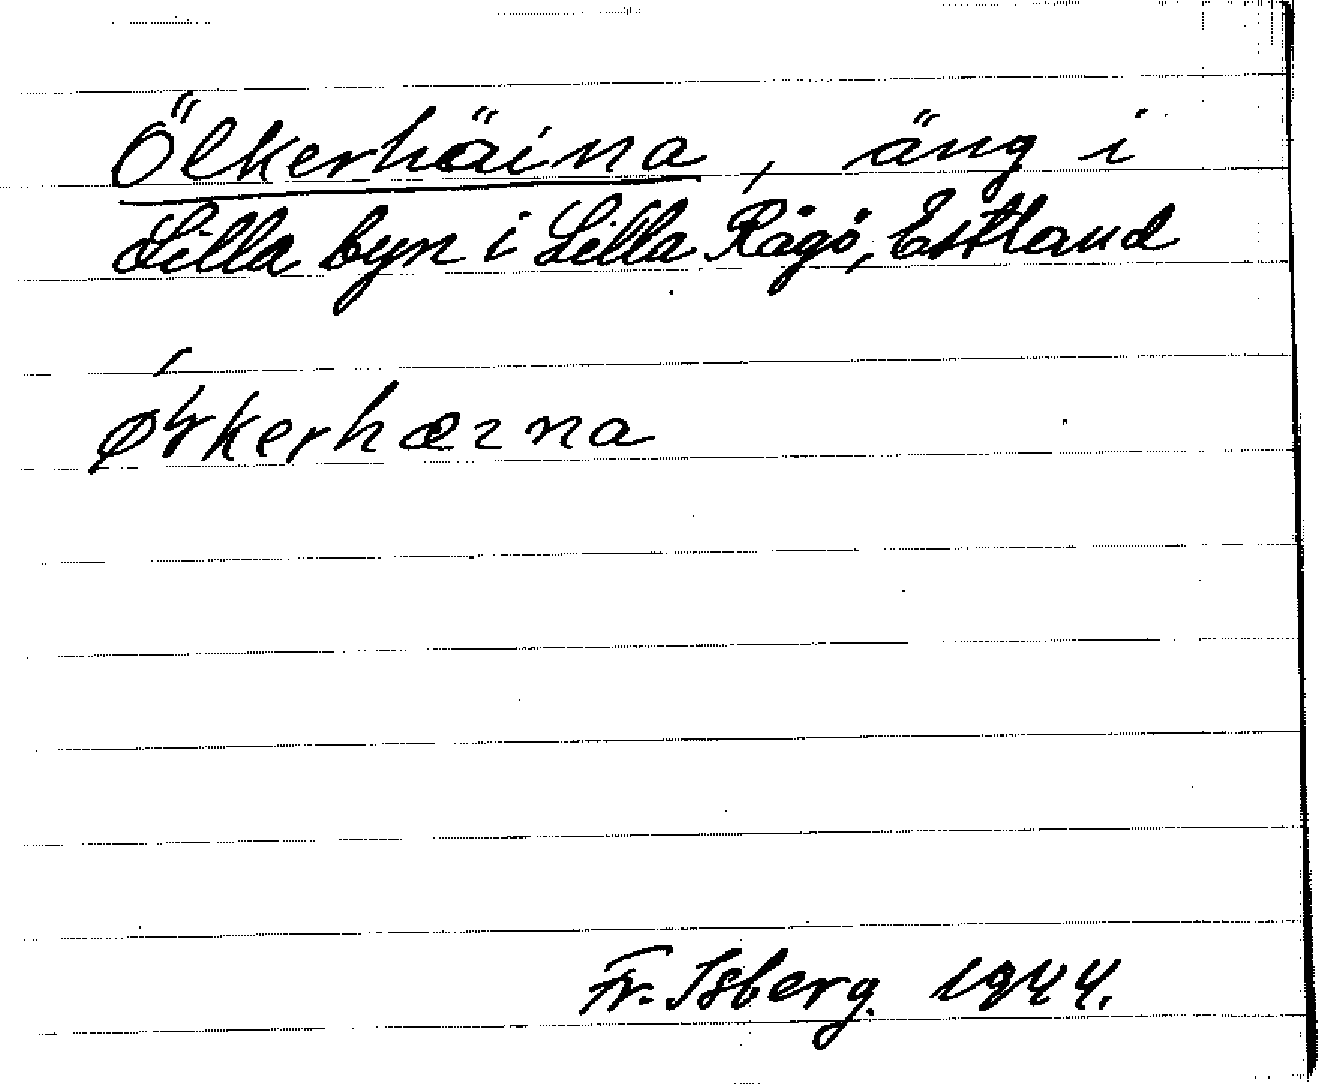 Ölkerhäina, äng i
Lilla byn i Lilla Rågö, Estland
Fr. Isberg. 1944.